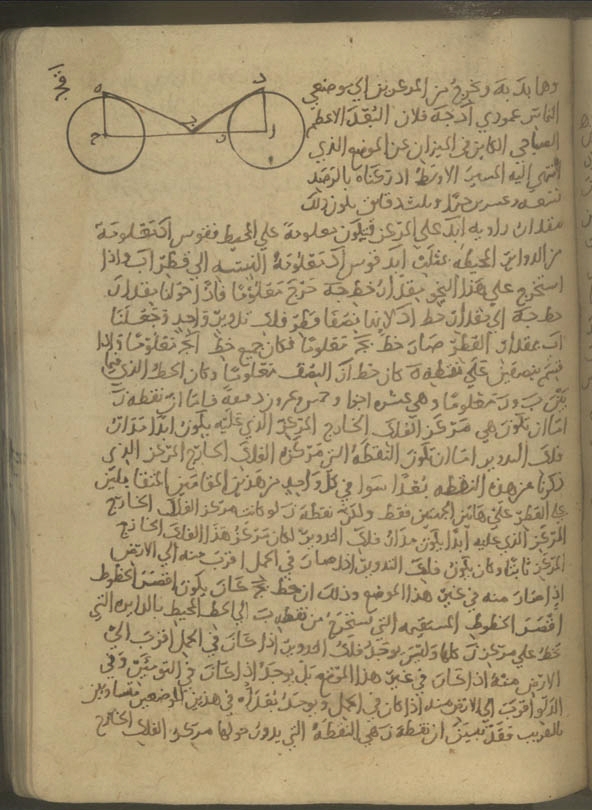 وهما بد به ونخرج من المركزين الي موضعي
التماس عمودي اد جه فلان البعد الاعظم
الصباحي الكاين في الميزان عن الموضع الذي
انتهي اليه المسير الاوسط ادركناه بالرصد
تسعه وعشرين جزا يكون ذلك
مقدار زاويه ابد علي المركز فيكون معلومة علي المحيط فقوس اد معلومة
من الدوائر المحيطه بمثلث ابد فوتر اد معلومة النسبه الي قطر اب واذا
استخرج علي هذا النحو مقدار خط جه خرج معلوما فاذا حولنا مقدار
خط جه الي مقدار خط اد نصفا قطر فلك تدوير واحد وجعلنا
اب بمقدار القطر صار خط بج معلوما فكان جميع خط ابج معلوما واذا
قسم بنصفين علي نقطه ر كان خط ار النصف معلوما وكان الخط الذي فيما
بين ب و ر معلوما وهي عشره اجزا وخمس وعشرون دقيقة فاما ان نقطه ر
اما ان تكون هي مركز الفلك الخارج المركز الذي عليه يكون ابدا مدار
فلك التدوير اما ان تكون النقطه التي مركز هذه الفلك الخارج المركز الذي
ذكرنا عن هذه النقطه بعدا سوا في كل واحد من هذين المقامين المتقابلين
علي القطر علي هاتين الجهتين فقط ولكن نقطه ر لو كانت مركز الفلك الخارج
المركز الذي عليه ابدا يكون مدار فلك التدوير لكان مركز هذا الفلك الخارج
المركز ثابتا وكان يكون فلك التدوير اذا صار في الحمل اقرب منه الي الارض
اذا صار منه في غير هذا الموضع وذلك ان خط بج كان يكون اقصر الخطوط
اقصر الخطوط المستقيمه التي تستخرج من نقطه ب الي الخط المحيط بالدايره التي
تخط علي مركز ر كلها وليس يوجد فلك التدوير اذا كان في الحمل اقرب الي
الارض منه اذا كان في غير هذا الموضع بل يوجد اذا كان في التومين وفي
الدلو اقرب الي الارض منه اذا كان في الحمل ويوجد بعداه في هذين الموضعين متساويين
بالقريب فقد تبين ان نقطه ر هي النقطه التي يدور حولها مركز الفلك الخارج